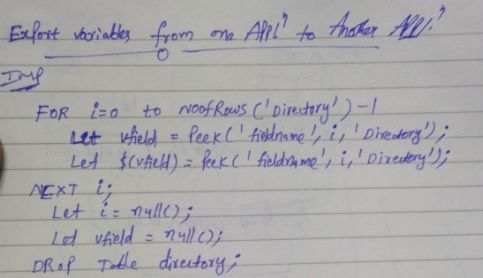 Export variables from one Appl" to Another Appl."
Imp
FOR i=0 to noofRows('Directory')-1
Let vfield = Peek('fieldname', i, 'Directory');
Let $(vfield) = Peek('fieldname', i, 'Directory');
NEXT i;
Let i = null();
Let vfield = null();
DROP Table directory;